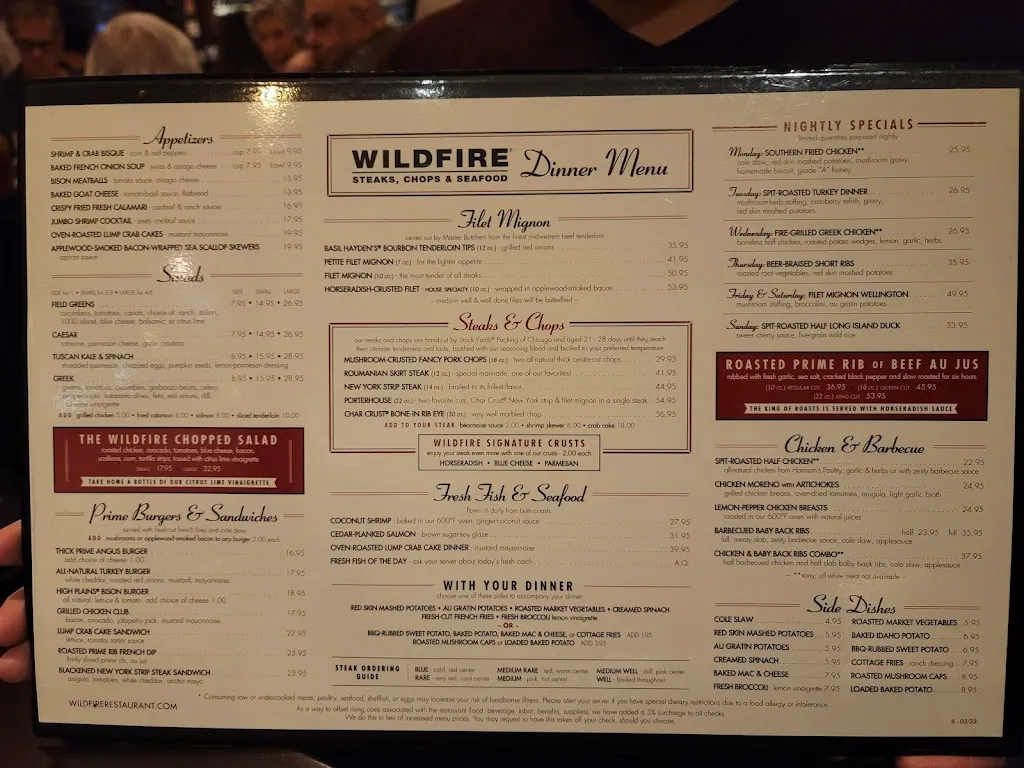 Appetizers
SHRIMP & CRAB BISQUE · corn & red peppers cup 7.95 bowl 9.95
BAKED FRENCH ONION SOUP · swiss & asiago cheese cup 7.95 bowl 9.95
BISON MEATBALLS · tomato sauce, asiago cheese 13.95
BAKED GOAT CHEESE · tomato-basil sauce, flatbread 13.95
CRISPY FRIED FRESH CALAMARI · cocktail & ranch sauces 16.95
JUMBO SHRIMP COCKTAIL · zesty cocktail sauce 17.95
OVEN-ROASTED LUMP CRAB CAKES · mustard mayonnaise 19.95
APPLEWOOD-SMOKED BACON-WRAPPED SEA SCALLOP SKEWERS 19.95
apricot sauce
Salads
SIZE for 1 • SMALL for 2-3 • LARGE for 4-6 SIDE SMALL LARGE
FIELD GREENS 7.95 • 14.95 • 26.95
cucumbers, tomatoes, carrots, choice of: ranch, italian,
1000 island, blue cheese, balsamic, or citrus lime
CAESAR 7.95 • 14.95 • 26.95
romaine, parmesan cheese, garlic croutons
TUSCAN KALE & SPINACH 8.95 • 15.95 • 28.95
shredded parmesan, chopped eggs, pumpkin seeds, lemon-parmesan dressing
GREEK 8.95 • 15.95 • 28.95
greens, tomatoes, cucumbers, garbanzo beans, celery,
pepperoncini, kalamata olives, feta, red onions, dill,
red wine vinaigrette
ADD grilled chicken 5.00 • fried calamari 6.00 • salmon 8.00 • sliced tenderloin 10.00
THE WILDFIRE CHOPPED SALAD
roasted chicken, avocado, tomatoes, blue cheese, bacon,
scallions, corn, tortilla strips, tossed with citrus lime vinaigrette
SMALL 17.95 • LARGE 32.95
TAKE HOME A BOTTLE OF OUR CITRUS LIME VINAIGRETTE
Prime Burgers & Sandwiches
served with fresh-cut french fries and cole slaw
ADD mushrooms or applewood-smoked bacon to any burger 2.00 each
THICK PRIME ANGUS BURGER 16.95
add choice of cheese 1.00
ALL-NATURAL TURKEY BURGER 17.95
white cheddar, roasted red onions, mustard, mayonnaise
HIGH PLAINS® BISON BURGER 18.95
all natural; lettuce & tomato · add choice of cheese 1.00
GRILLED CHICKEN CLUB 17.95
bacon, avocado, jalapeño jack, mustard mayonnaise
LUMP CRAB CAKE SANDWICH 22.95
lettuce, tomato, tartar sauce
ROASTED PRIME RIB FRENCH DIP 23.95
thinly sliced prime rib, au jus
BLACKENED NEW YORK STRIP STEAK SANDWICH 23.95
arugula, tomatoes, white cheddar, ancho mayo
WILDFIRERESTAURANT.COM
WILDFIRE®
STEAKS, CHOPS & SEAFOOD
Dinner Menu
Filet Mignon
center cut by Master Butchers from the finest midwestern beef tenderloin
BASIL HAYDEN'S® BOURBON TENDERLOIN TIPS (12 oz.) · grilled red onions 35.95
PETITE FILET MIGNON (7 oz.) · for the lighter appetite 41.95
FILET MIGNON (10 oz.) · the most tender of all steaks 50.95
HORSERADISH-CRUSTED FILET · HOUSE SPECIALTY (10 oz.) · wrapped in applewood-smoked bacon 53.95
– medium well & well done filets will be butterflied –
Steaks & Chops
our steaks and chops are hand-cut by Stock Yards® Packing of Chicago and aged 21 - 28 days until they reach
their ultimate tenderness and taste, brushed with our seasoning blend and broiled to your preferred temperature
MUSHROOM-CRUSTED FANCY PORK CHOPS (16 oz.) · two all-natural thick center-cut chops 29.95
ROUMANIAN SKIRT STEAK (12 oz.) · special marinade; one of our favorites! 41.95
NEW YORK STRIP STEAK (14 oz.) · broiled to its fullest flavor 44.95
PORTERHOUSE (22 oz.) · two favorite cuts, Char Crust® New York strip & filet mignon in a single steak 54.95
CHAR CRUST® BONE-IN RIB EYE (20 oz.) · very well marbled chop 56.95
ADD TO YOUR STEAK béarnaise sauce 2.00 • shrimp skewer 8.00 • crab cake 18.00
WILDFIRE SIGNATURE CRUSTS
enjoy your steak even more with one of our crusts · 2.00 each
HORSERADISH • BLUE CHEESE • PARMESAN
Fresh Fish & Seafood
flown in daily from both coasts
COCONUT SHRIMP · baked in our 600°F oven, ginger-coconut sauce 27.95
CEDAR-PLANKED SALMON · brown sugar soy glaze 31.95
OVEN-ROASTED LUMP CRAB CAKE DINNER · mustard mayonnaise 39.95
FRESH FISH OF THE DAY · ask your server about today's fresh catch A.Q.
WITH YOUR DINNER
choose one of these sides to accompany your dinner:
RED SKIN MASHED POTATOES • AU GRATIN POTATOES • ROASTED MARKET VEGETABLES • CREAMED SPINACH
FRESH-CUT FRENCH FRIES • FRESH BROCCOLI lemon vinaigrette
- OR -
BBQ-RUBBED SWEET POTATO, BAKED POTATO, BAKED MAC & CHEESE, or COTTAGE FRIES ADD 1.95
ROASTED MUSHROOM CAPS or LOADED BAKED POTATO ADD 3.95
STEAK ORDERING
GUIDE
BLUE · cold, red center
RARE · very red, cool center
MEDIUM RARE · red, warm center
MEDIUM · pink, hot center
MEDIUM WELL · dull, pink center
WELL · broiled throughout
NIGHTLY SPECIALS
limited quantities prepared nightly
Monday: SOUTHERN FRIED CHICKEN** 25.95
cole slaw, red skin mashed potatoes, mushroom gravy,
homemade biscuit, grade "A" honey
Tuesday: SPIT-ROASTED TURKEY DINNER 26.95
mushroom-herb stuffing, cranberry relish, gravy,
red skin mashed potatoes
Wednesday: FIRE-GRILLED GREEK CHICKEN** 26.95
boneless half chicken, roasted potato wedges, lemon, garlic, herbs
Thursday: BEER-BRAISED SHORT RIBS 35.95
roasted root vegetables, red skin mashed potatoes
Friday & Saturday: FILET MIGNON WELLINGTON 49.95
mushroom stuffing, broccolini, au gratin potatoes
Sunday: SPIT-ROASTED HALF LONG ISLAND DUCK 33.95
sweet cherry sauce, five-grain wild rice
ROASTED PRIME RIB OF BEEF AU JUS
rubbed with fresh garlic, sea salt, cracked black pepper and slow roasted for six hours
(10 oz.) REGULAR CUT 36.95 (16 oz.) QUEEN CUT 45.95
(22 oz.) KING CUT 53.95
THE KING OF ROASTS IS SERVED WITH HORSERADISH SAUCE
Chicken & Barbecue
SPIT-ROASTED HALF CHICKEN** 22.95
all-natural chicken from Harrison's Poultry, garlic & herbs or with zesty barbecue sauce
CHICKEN MORENO WITH ARTICHOKES 24.95
grilled chicken breasts, oven-dried tomatoes, arugula, light garlic broth
LEMON-PEPPER CHICKEN BREASTS 24.95
roasted in our 600°F oven with natural juices
BARBECUED BABY BACK RIBS half 23.95 full 35.95
full, meaty slab, zesty barbecue sauce, cole slaw, applesauce
CHICKEN & BABY BACK RIBS COMBO** 37.95
half barbecued chicken and half slab baby back ribs, cole slaw, applesauce
– **sorry, all white meat not available –
Side Dishes
COLE SLAW 4.95
RED SKIN MASHED POTATOES 5.95
AU GRATIN POTATOES 5.95
CREAMED SPINACH 5.95
BAKED MAC & CHEESE 7.95
FRESH BROCCOLI · lemon vinaigrette 7.95
ROASTED MARKET VEGETABLES 5.95
BAKED IDAHO POTATO 6.95
BBQ-RUBBED SWEET POTATO 6.95
COTTAGE FRIES · ranch dressing 7.95
ROASTED MUSHROOM CAPS 8.95
LOADED BAKED POTATO 8.95
* Consuming raw or undercooked meats, poultry, seafood, shellfish, or eggs may increase your risk of foodborne illness. Please alert your server if you have special dietary restrictions due to a food allergy or intolerance.
As a way to offset rising costs associated with the restaurant (food, beverage, labor, benefits, supplies), we have added a 3% surcharge to all checks.
We do this in lieu of increased menu prices. You may request to have this taken off your check, should you choose.
03/23